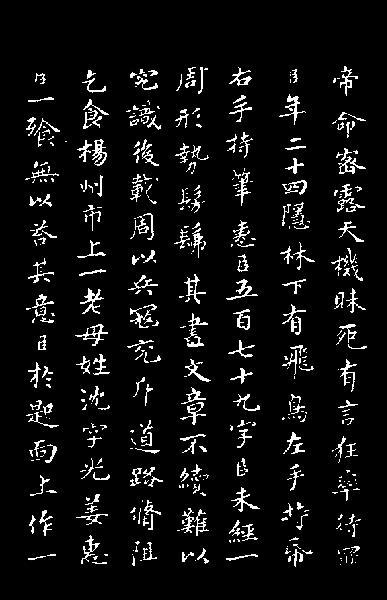 帝命密露天機昧死有言狂率待罪
臣年二十四隱林下有飛鳥左手持帋
右手持筆惠臣五百七十九字臣未經一
周形勢髣髴其書文章不續難以
究識後載周以兵寇充斥道路脩阻
乞食楊州市上一老母姓沈字光姜惠
臣一飱無以答其意臣於匙面上作一